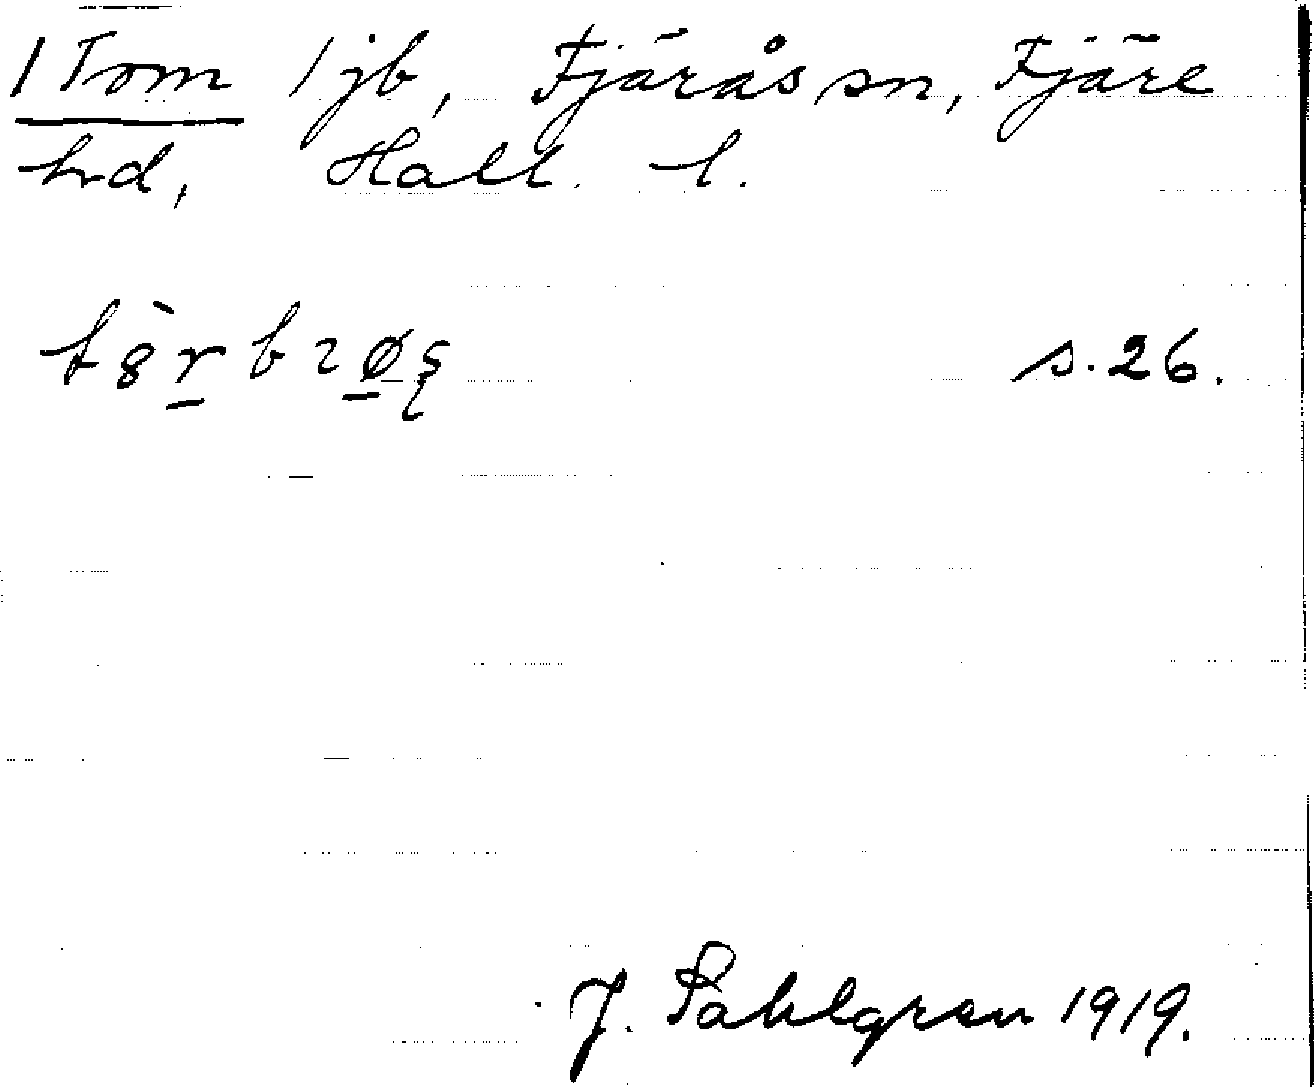 1 Tom 1 jb, Fjärås sn, Fjäre
hd, Hall. l.
s. 26.
J. Sahlgren 1919.